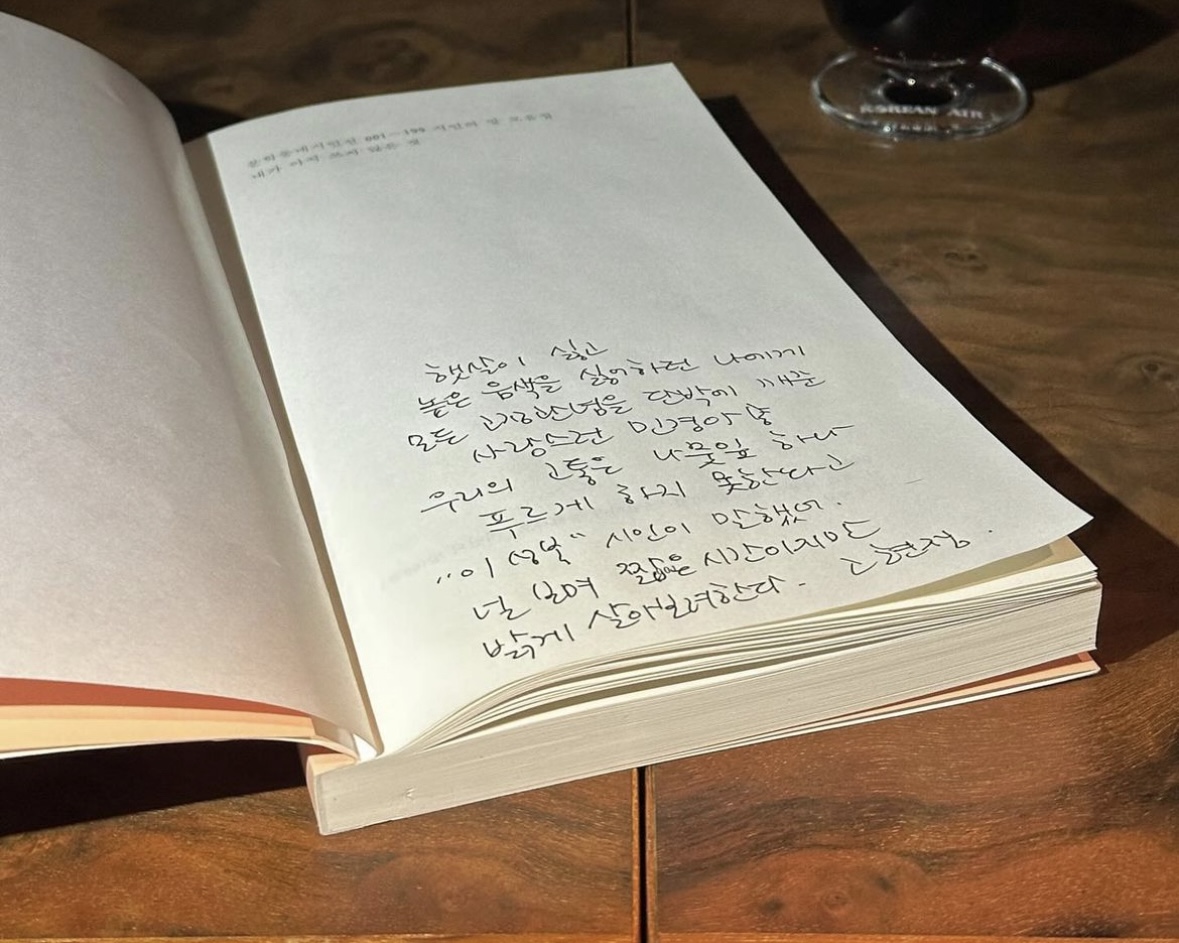 문학동네시인선 001—199 시인의 말 모음집
내가 아직 쓰지 않은 것
햇살이 싫고
높은 음색을 싫어하던 나에게
모든 고정관념을 단박에 깨준
사랑스런 민경아
우리의 고통은 나뭇잎 하나
푸르게 하지 못한다고
"이성복" 시인이 말했어.
널 보며 짧은 시간이지만
밝게 살아보려한다. 고현정.
KOREAN AIR